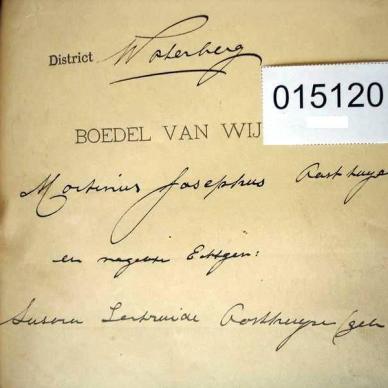 District Waterberg
015120
BOEDEL VAN WIJ
Martinus Josephus Oosthuyse
en nagelate Echtgen:
Susara Gertruida Oosthuyse (geb